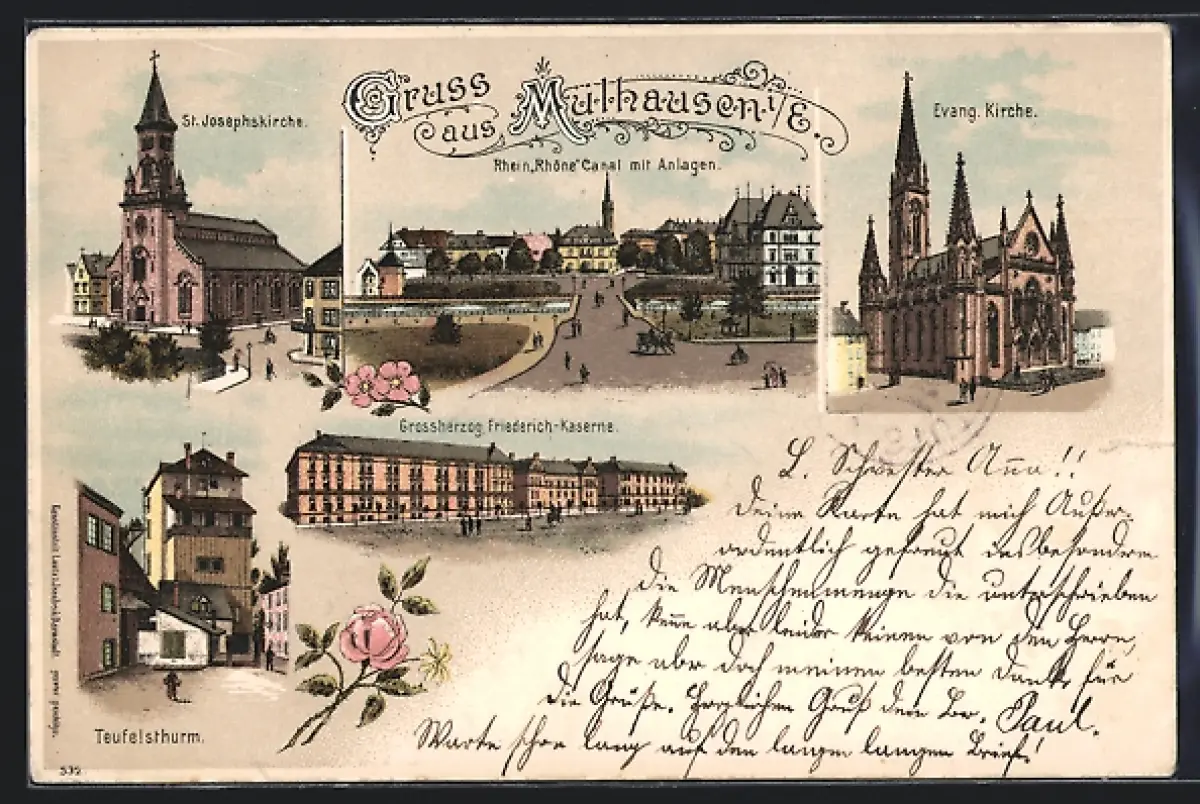 Gruss
aus Mülhausen i/E.
St. Josephskirche.
Rhein „Rhône" Canal mit Anlagen.
Evang. Kirche.
Grossherzog Friederich-Kaserne.
Teufelsthurm.
532
L. Schwester Anna!!
Deine Karte hat mich Außer-
ordentlich gefreut insbesondere
die Menschenmenge die unterschrieben
hat, kenne aber leider keinen von den Herrn,
sage aber doch meinen besten Dank für
die Grüße. Herzlichen Gruß dein Br. Paul.
Warte schon lang auf den langen langen Brief!